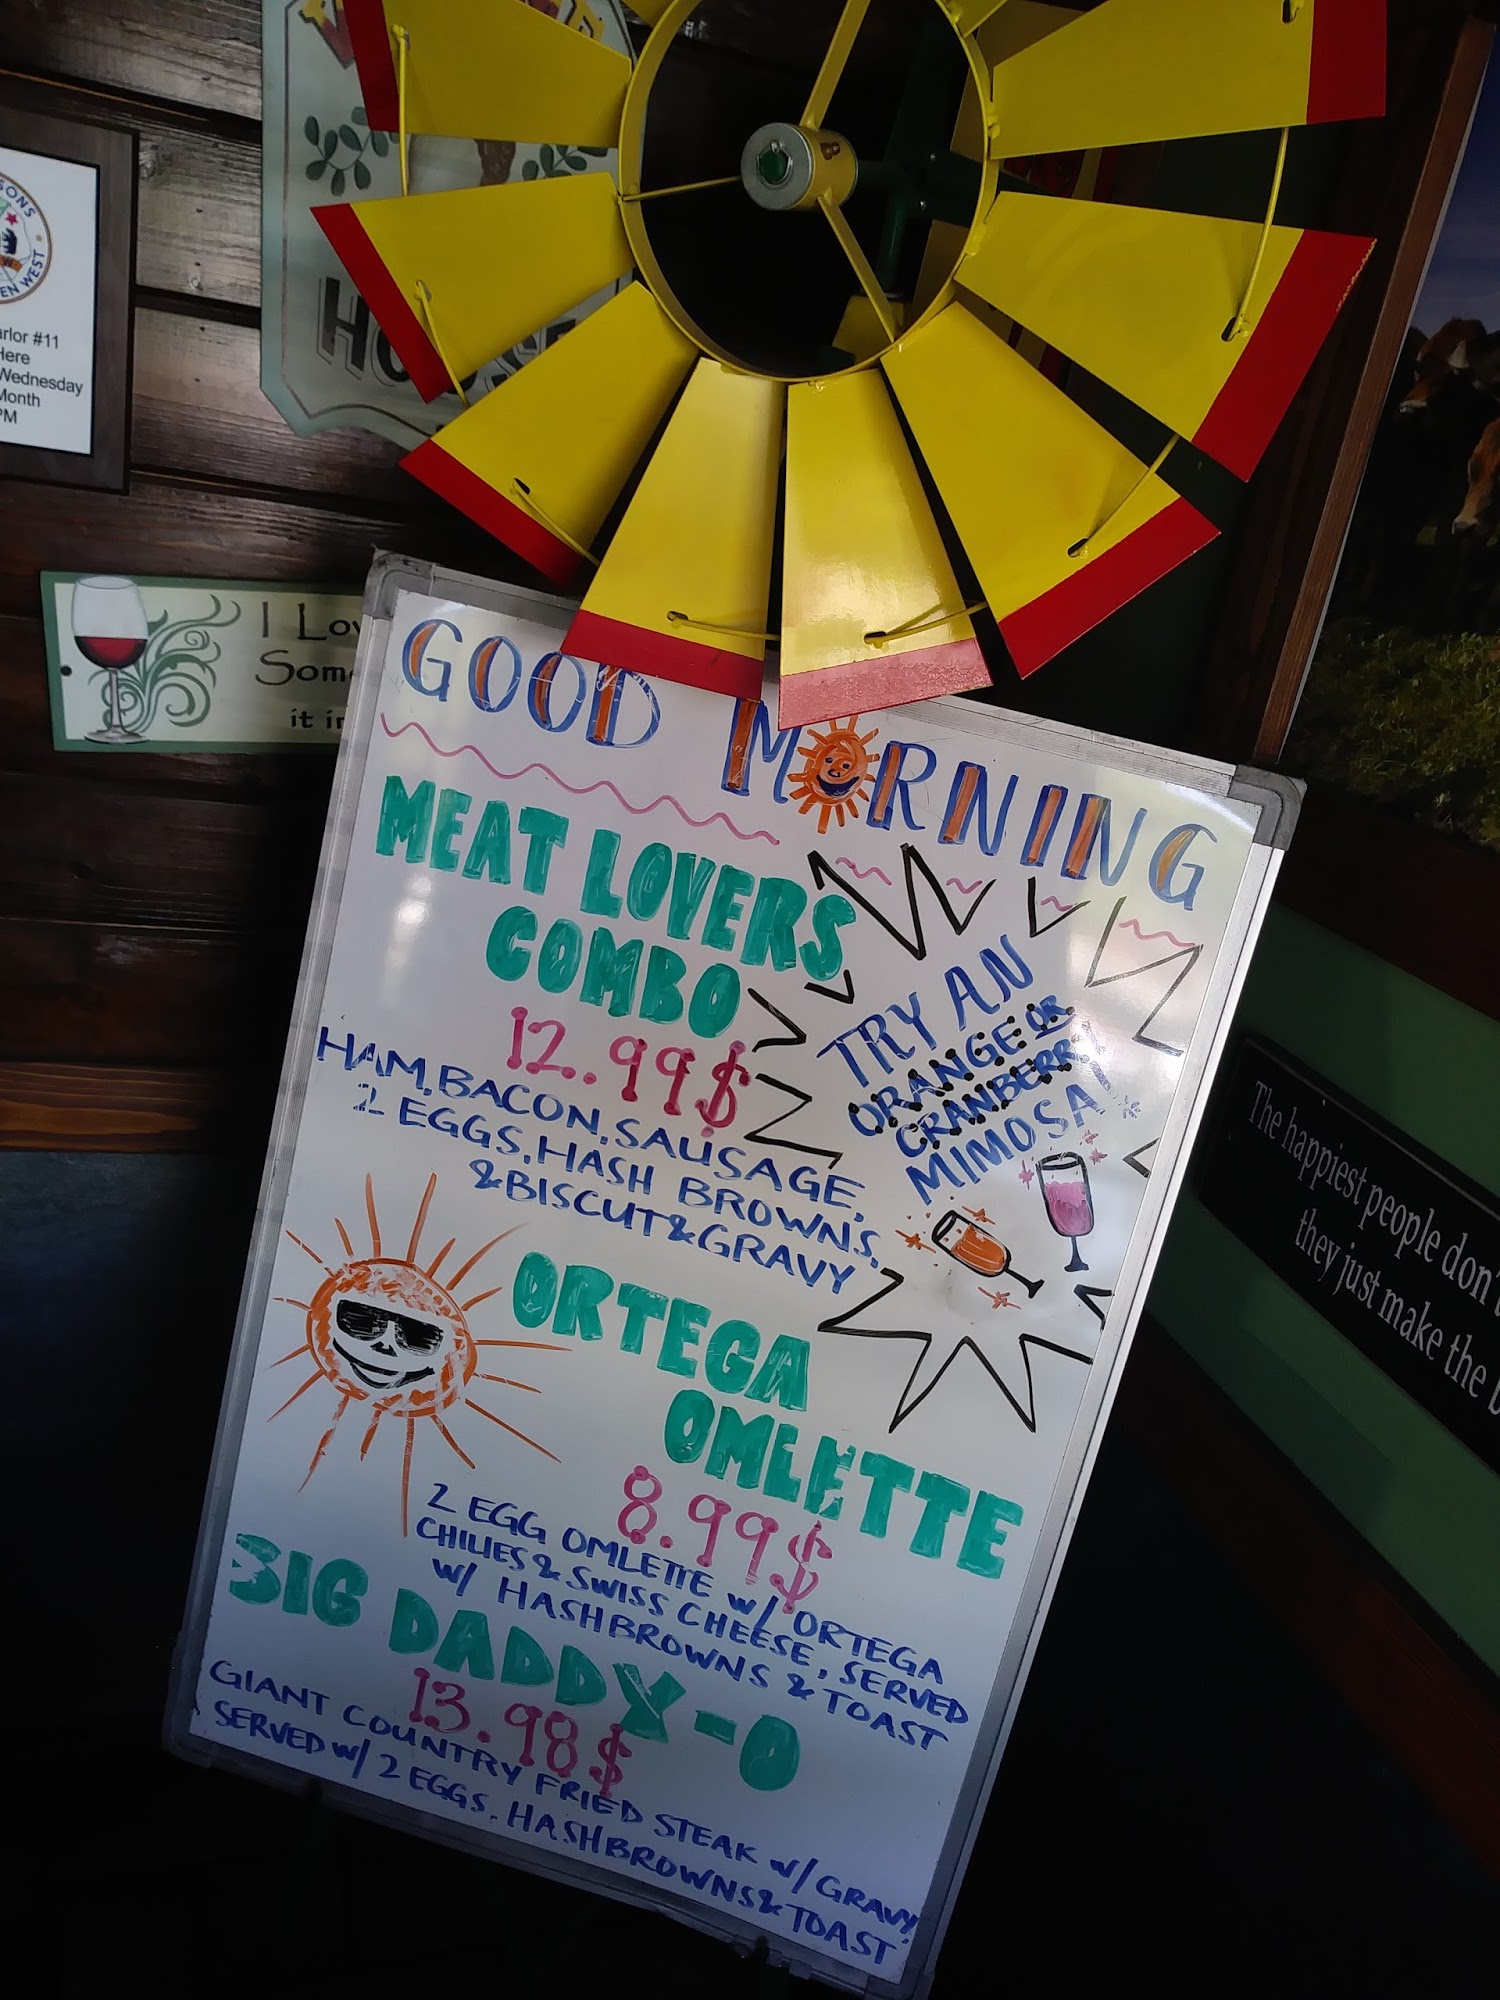 SONS
EN WEST
#11
Here
Wednesday
Month
PM
HOUSE
I Lov
Som
it in
GOOD MORNING
MEAT LOVERS
COMBO
12.99$
HAM, BACON, SAUSAGE,
2 EGGS, HASH BROWNS,
& BISCUT & GRAVY
TRY AN
ORANGE OR
CRANBERRY
MIMOSA!
ORTEGA
OMLETTE
8.99$
2 EGG OMLETTE w/ ORTEGA
CHILIES & SWISS CHEESE, SERVED
w/ HASHBROWNS & TOAST
BIG DADDY-O
13.98$
GIANT COUNTRY FRIED STEAK w/ GRAVY,
SERVED w/ 2 EGGS, HASHBROWNS & TOAST
The happiest people don't
they just make the b